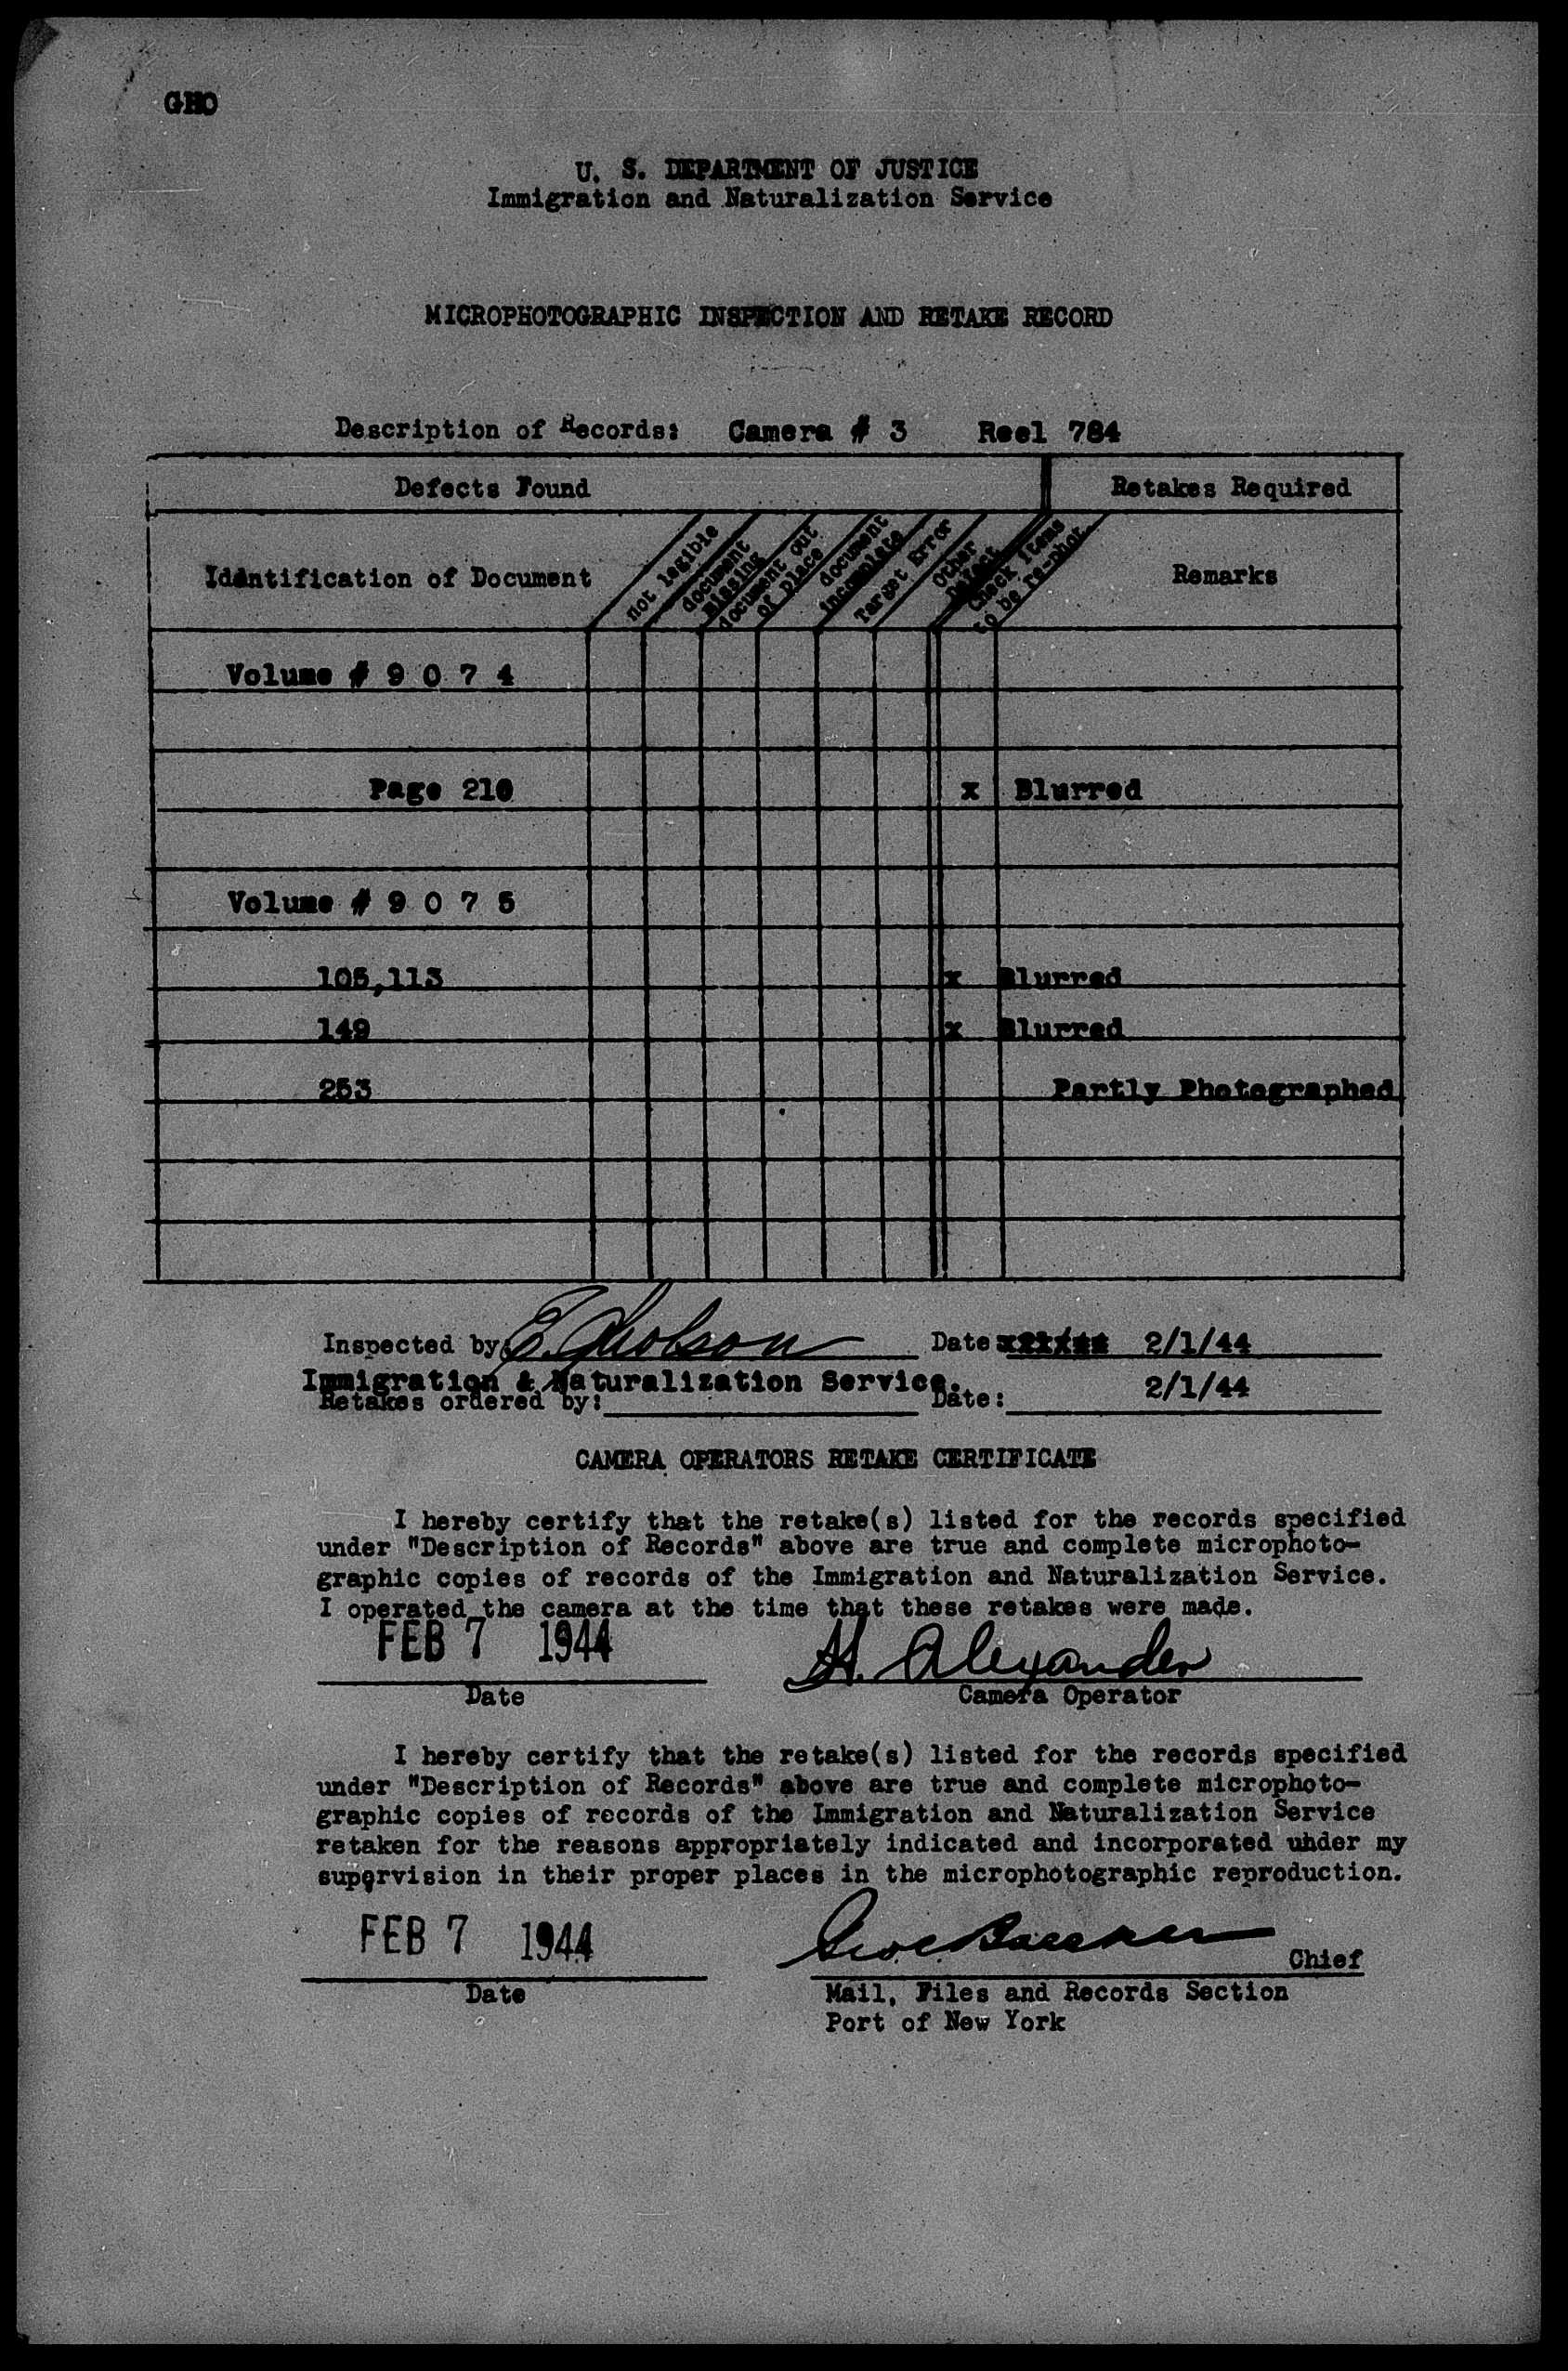 GHO
U. S. DEPARTMENT OF JUSTICE
Immigration and Naturalization Service
MICROPHOTOGRAPHIC INSPECTION AND RETAKE RECORD
Description of Records: Camera # 3 Reel 784
Defects Found Retakes Required
Identification of Document
not legible
document missing
document out of place
document incomplete
Target Error
Other Defect
Check items to be re-phot.
Remarks
Volume # 9 0 7 4
Page 210 x Blurred
Volume # 9 0 7 5
105,113 x Blurred
149 x Blurred
253 Partly Photographed
Inspected by: Date 2/1/44
Immigration & Naturalization Service. 2/1/44
Retakes ordered by: Date:
CAMERA OPERATORS RETAKE CERTIFICATE
I hereby certify that the retake(s) listed for the records specified
under "Description of Records" above are true and complete microphoto-
graphic copies of records of the Immigration and Naturalization Service.
I operated the camera at the time that these retakes were made.
FEB 7 1944 H. Alexander
Date Camera Operator
I hereby certify that the retake(s) listed for the records specified
under "Description of Records" above are true and complete microphoto-
graphic copies of records of the Immigration and Naturalization Service
retaken for the reasons appropriately indicated and incorporated under my
supervision in their proper places in the microphotographic reproduction.
FEB 7 1944
Chief
Date Mail, Files and Records Section
Port of New York